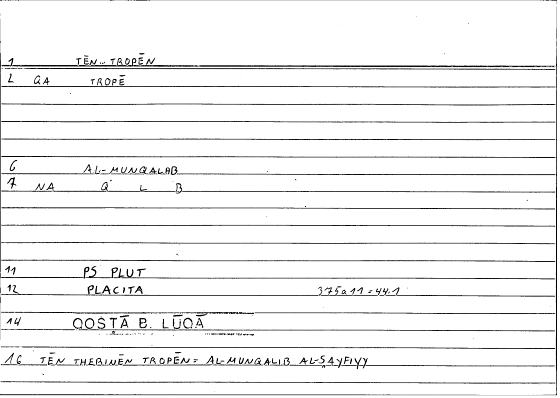 1 TĒN-TROPĒN
2 QA TROPĒ
6 AL-MUNQALAB
7 NA Q L B
11 PS PLUT
12 PLACITA 375a11=44.1
14 QOSṬĀ B. LŪQĀ
16 TĒN THERINĒN TROPĒN= AL-MUNQALIB AL-ṢAYFIYY